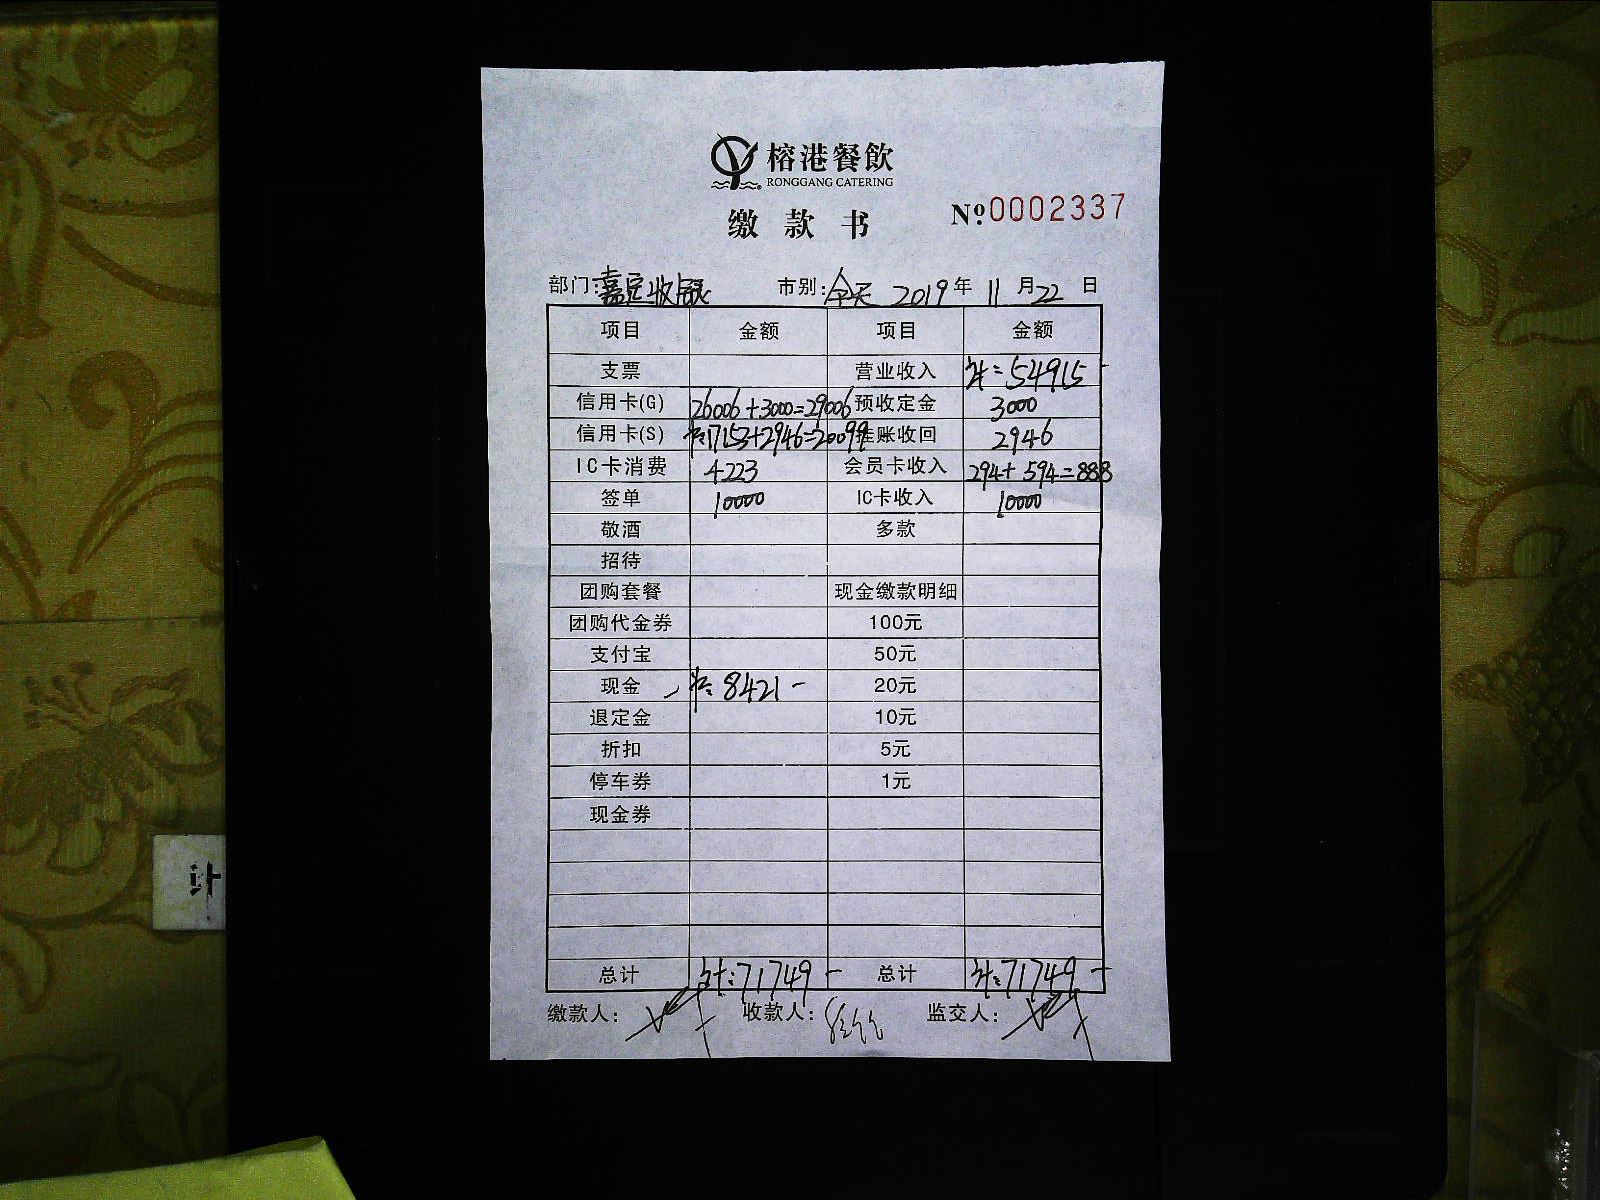 榕港餐飲
RONGGANG CATERING
缴款书
№0002337
部门:嘉定收银 市别:全天 2019年11月22日
项目 金额 项目 金额
支票 营业收入 计:54915-
信用卡(G) 26006+3000=29006 预收定金 3000
信用卡(S) 17153+2946=20099 挂账收回 2946
IC卡消费 4223 会员卡收入 294+594=888
签单 10000 IC卡收入 10000
敬酒 多款
招待
团购套餐 现金缴款明细
团购代金券 100元
支付宝 50元
现金 8421- 20元
退定金 10元
折扣 5元
停车券 1元
现金券
总计 计:71749- 总计 计:71749-
缴款人: 收款人: 监交人:
计